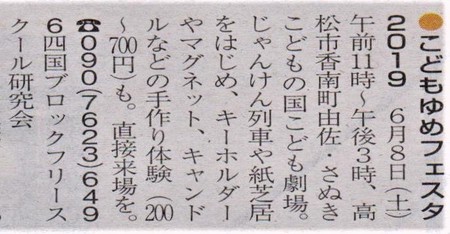 ●こどもゆめフェスタ
2019　6月8日(土)
午前11時～午後3時、高
松市香南町由佐・さぬき
こどもの国こども劇場。
じゃんけん列車や紙芝居
をはじめ、キーホルダー
やマグネット、キャンド
ルなどの手作り体験(200
～700円)も。直接来場を。
☎090(7623)649
6四国ブロックフリース
クール研究会